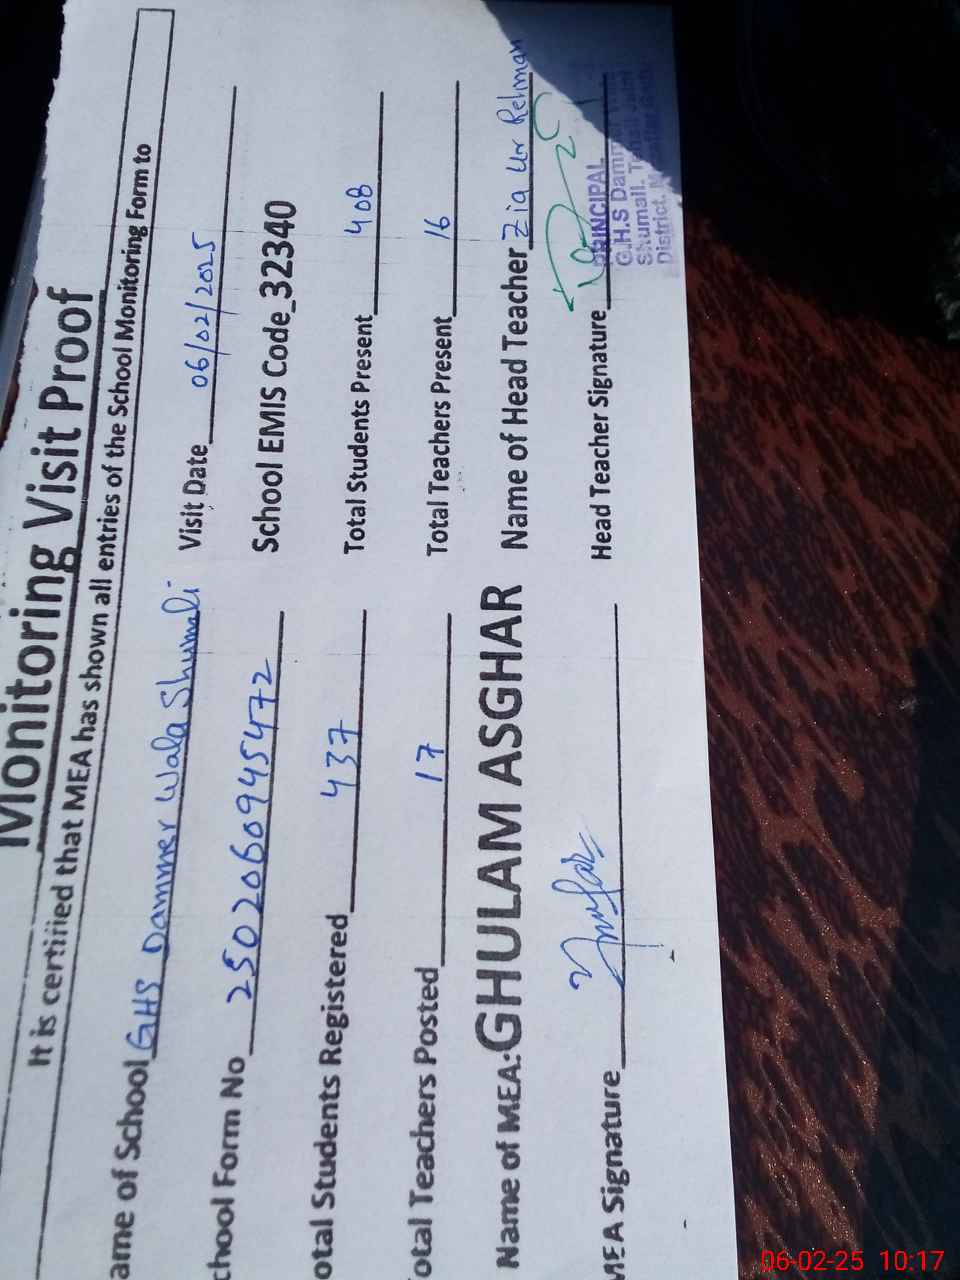 Monitoring Visit Proof
It is certified that MEA has shown all entries of the School Monitoring Form to
ame of School GHS Dammer Wala Shumali Visit Date 06/02/2025
chool Form No 250206094S472 School EMIS Code_32340
otal Students Registered 437 Total Students Present 408
otal Teachers Posted 17 Total Teachers Present 16
Name of MEA: GHULAM ASGHAR Name of Head Teacher Zia Ur Rehman
MEA Signature Head Teacher Signature
PRINCIPAL
G.H.S Dammer
Shumali.
District.
06-02-25 10:17